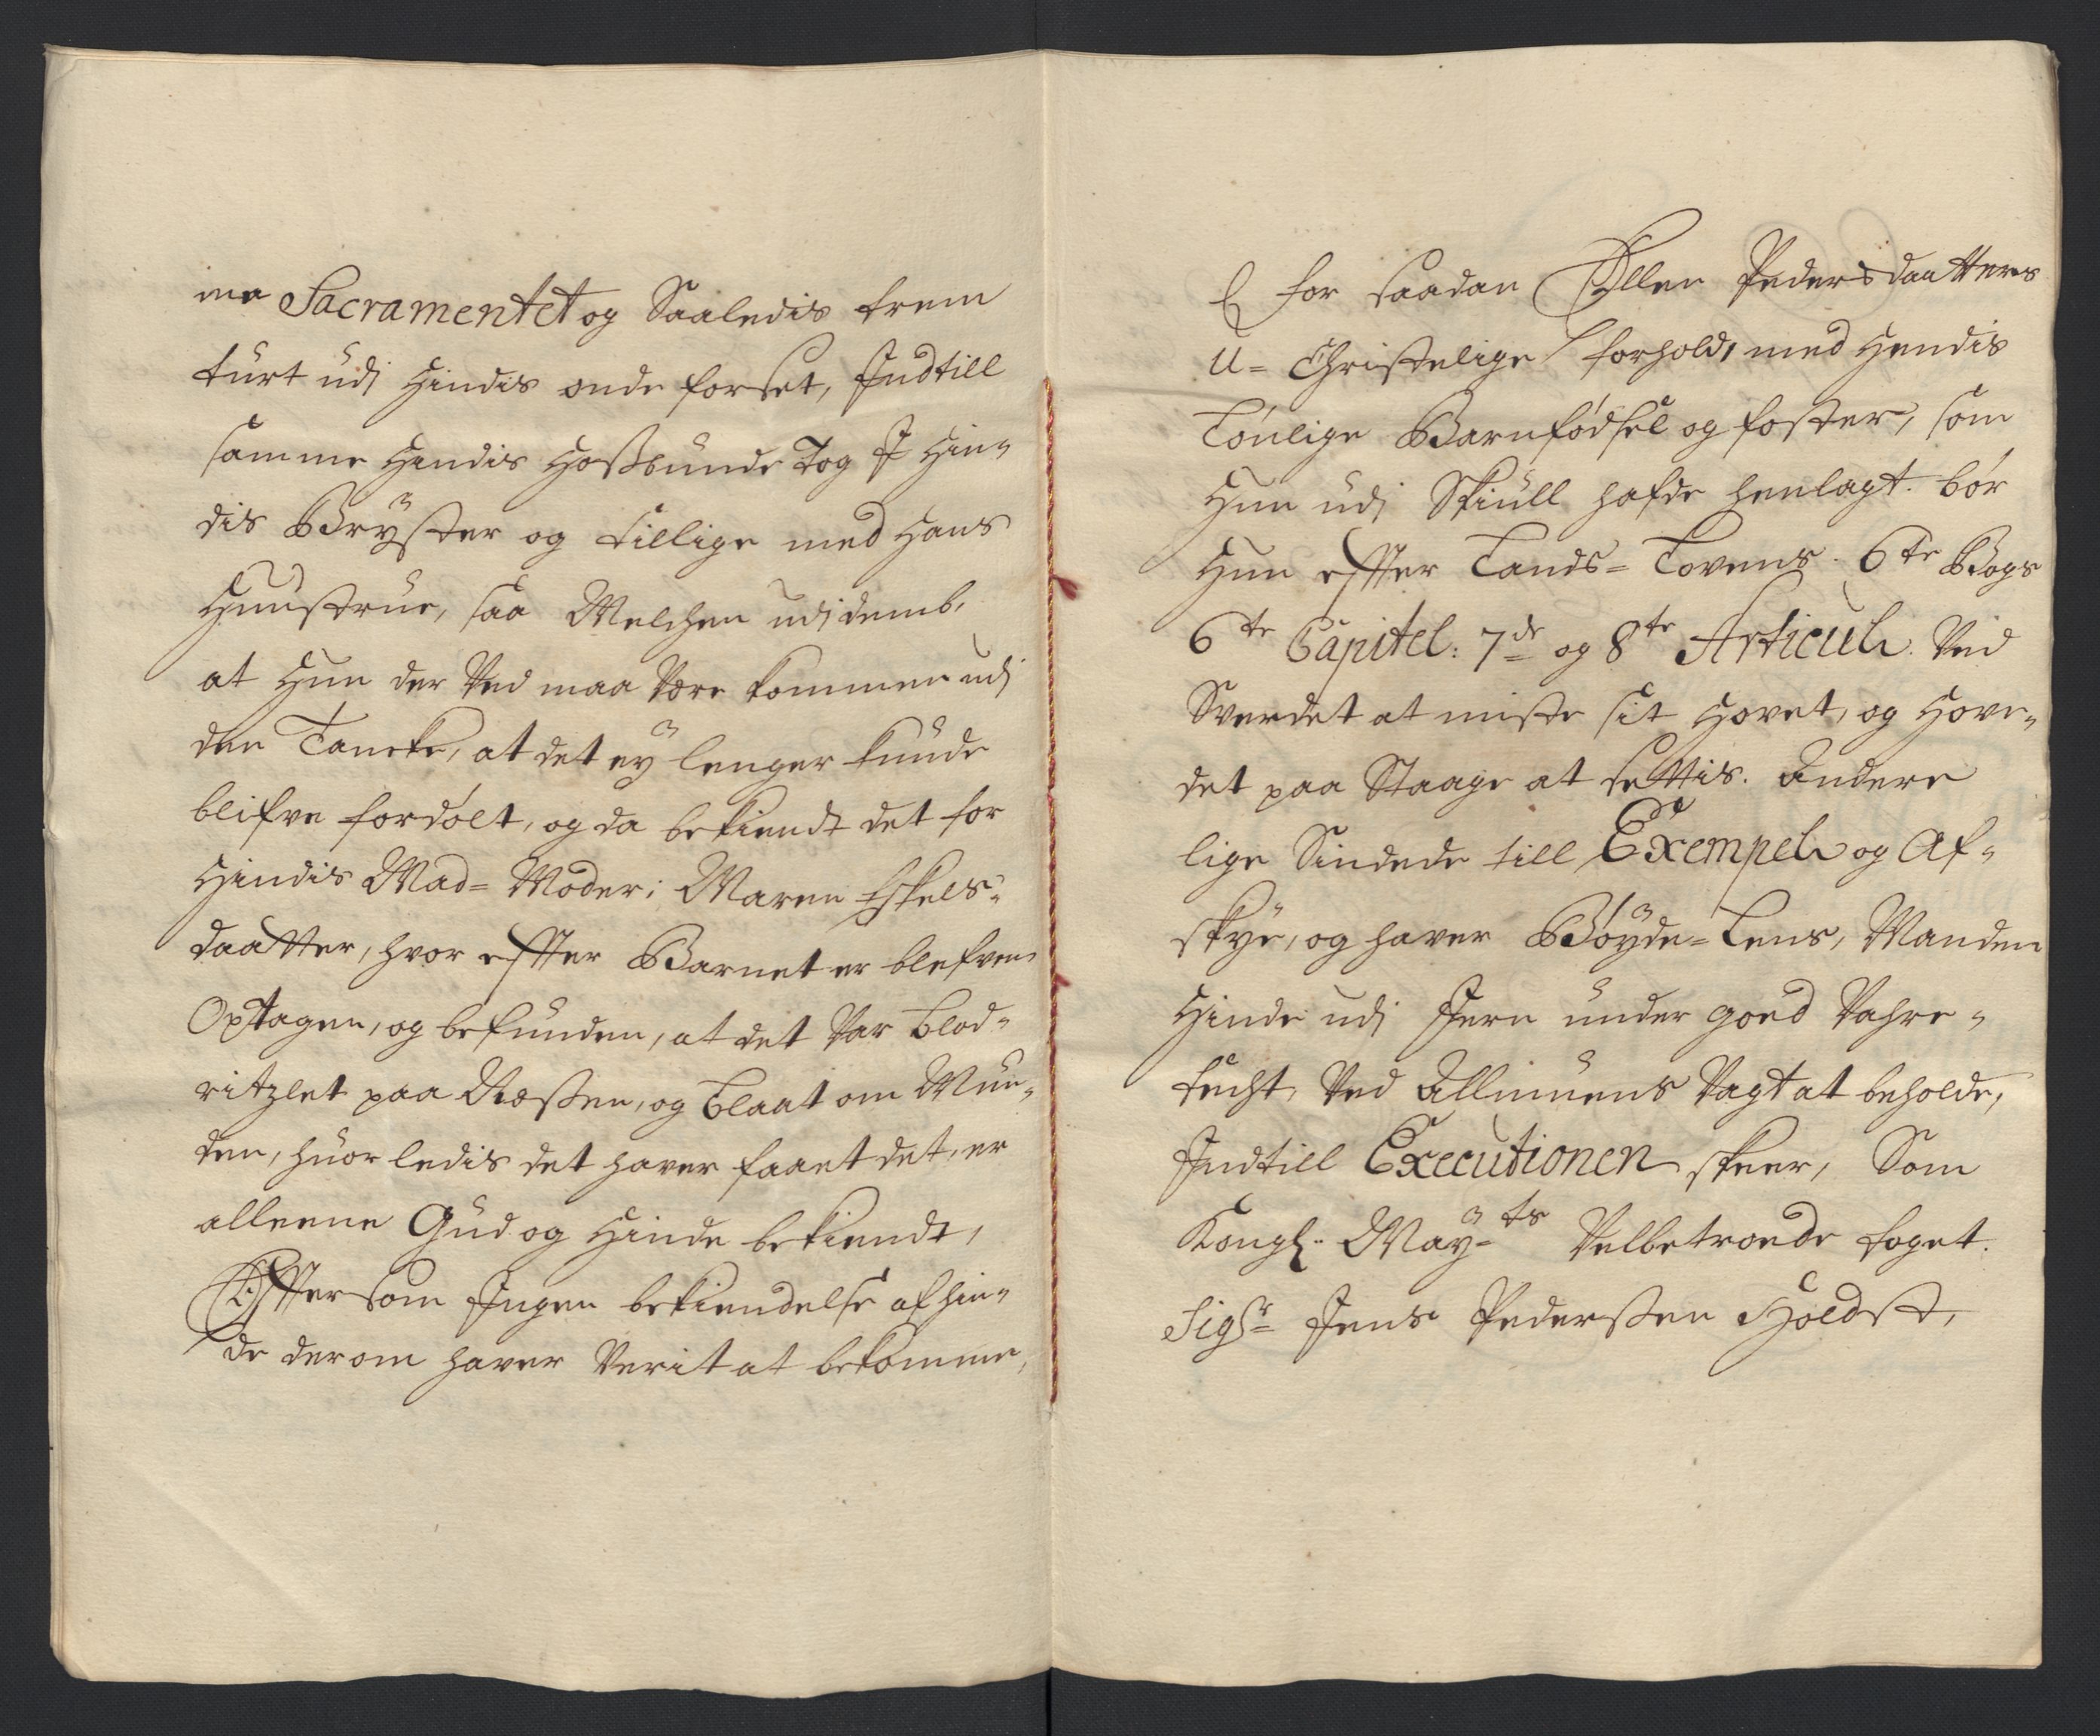 me Sacramentet og Saaledis frem
turt udj Hindis onde forset, Indtill
samme Hendis Hossbunde Tog I Hin-
dis Bryster og tillige med Hans
Huustrue, saa Melchen udj demb,
at Hun der Ved maa Vere kommen udj
den Tancke, at det ey lenger kunde
blifve fordólt, og da bekiendt det for
Hindis Mad= Moder; Maren Eskels-
daatter, hvor effter Barnet er blefven
Optagen, og befunden, at det Var blod-
ritzlet paa Nœssen, og blaat om Mun-
den, huorledis det haver faaet det, er
alleene Gud og Hinde bekiendt,
Efftersom Ingen bekiendelse af hin-
de derom haver Verit at bekomme,
for saadan Ellen Pedersdaatters
U= Christelige forhold, med Hendis
Lónlige Barnfódsel og foster, som
Hun udj Skiull hafde henlagt. bór
Hun effter Lands= Lovens 6te Bogs
6te Capitel: 7de og 8te Articul. Ved
Sverdet at miste sit Hovet, og Hove-
det paa Staage at settis. Andere
lige Sindede till Exempel og Af-
skye, og haver Bóyde= Lens, Manden
Hinde udj Jern under goed Vahre-
techt, Ved Allmuens Vagt at beholde,
Indtill Executionen skeer, Som
Kongl. May=ts Velbetroede foget.
Sigr= Jens Pederssen Holdst,